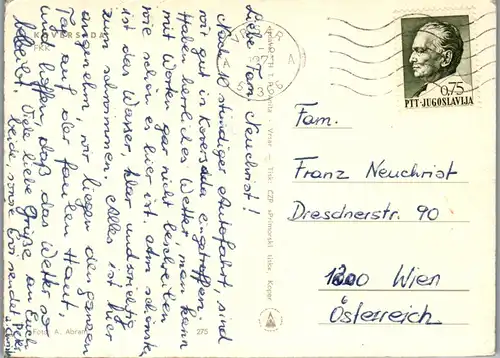 KOVERSADA
FKK
Liebe Fam. Neuchrist!
Nach 10 stündiger Autofahrt, sind
wir gut in Koversada eingetroffen.
Haben herrliches Wetter, man kann
mit Worten gar nicht beschreiben
wie schön es hier ist. Am schönsten
ist das Wasser, klar und richtig
zum schwimmen. Alles ist hier
angenehm, wir liegen den ganzen
Tag auf der faulen Haut,
und hoffen, daß das Wetter so
bleibt. Viele liebe Grüße an Euch
beide, sowie
Foto: A. Abram
275
VRSAR
1971
A A
PTT-JUGOSLAVIJA
0,75
Fam.
Franz Neuchrist
Dresdnerstr. 90
1200 Wien
Österreich